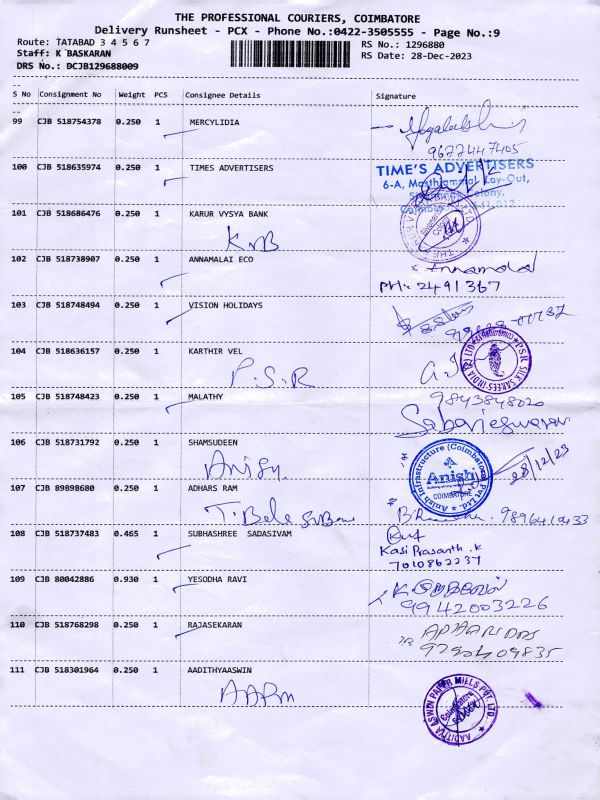 THE PROFESSIONAL COURIERS, COIMBATORE
Delivery Runsheet - PCX - Phone No.:0422-3505555 - Page No.:9
Route: TATABAD 3 4 5 6 7
RS No.: 1296880
Staff: K BASKARAN
RS Date: 28-Dec-2023
DRS No.: DCJB129688009
S No Consignment No Weight PCS Consignee Details Signature
99 CJB 518754378 0.250 1 MERCYLIDIA
9622447405
100 CJB 518635974 0.250 1 TIMES ADVERTISERS
TIME'S ADVERTISERS
6-A, Lay-Out,
101 CJB 518686476 0.250 1 KARUR VYSYA BANK
KVB
102 CJB 518738907 0.250 1 ANNAMALAI ECO
Annamalai
PH: 2491367
103 CJB 518748494 0.250 1 VISION HOLIDAYS
104 CJB 518636157 0.250 1 KARTHIR VEL
P.S.R
PSR SILK SAREES INDIA (P) LTD
105 CJB 518748423 0.250 1 MALATHY
9843848020
Sabarieswaran
106 CJB 518731792 0.250 1 SHAMSUDEEN
Anish Infrastructure (Coimbatore) Pvt Ltd.
Anish
COIMBATORE
28/12/23
107 CJB 89898680 0.250 1 ADHARS RAM
108 CJB 518737483 0.465 1 SUBHASHREE SADASIVAM
Kasi Prasanth.K
7010862237
109 CJB 80042886 0.930 1 YESODHA RAVI
9942003226
110 CJB 518768298 0.250 1 RAJASEKARAN
111 CJB 518301964 0.250 1 AADITHYAASWIN
AADITYA ASWIN PAPER MILLS PVT. LTD.
Coimbatore